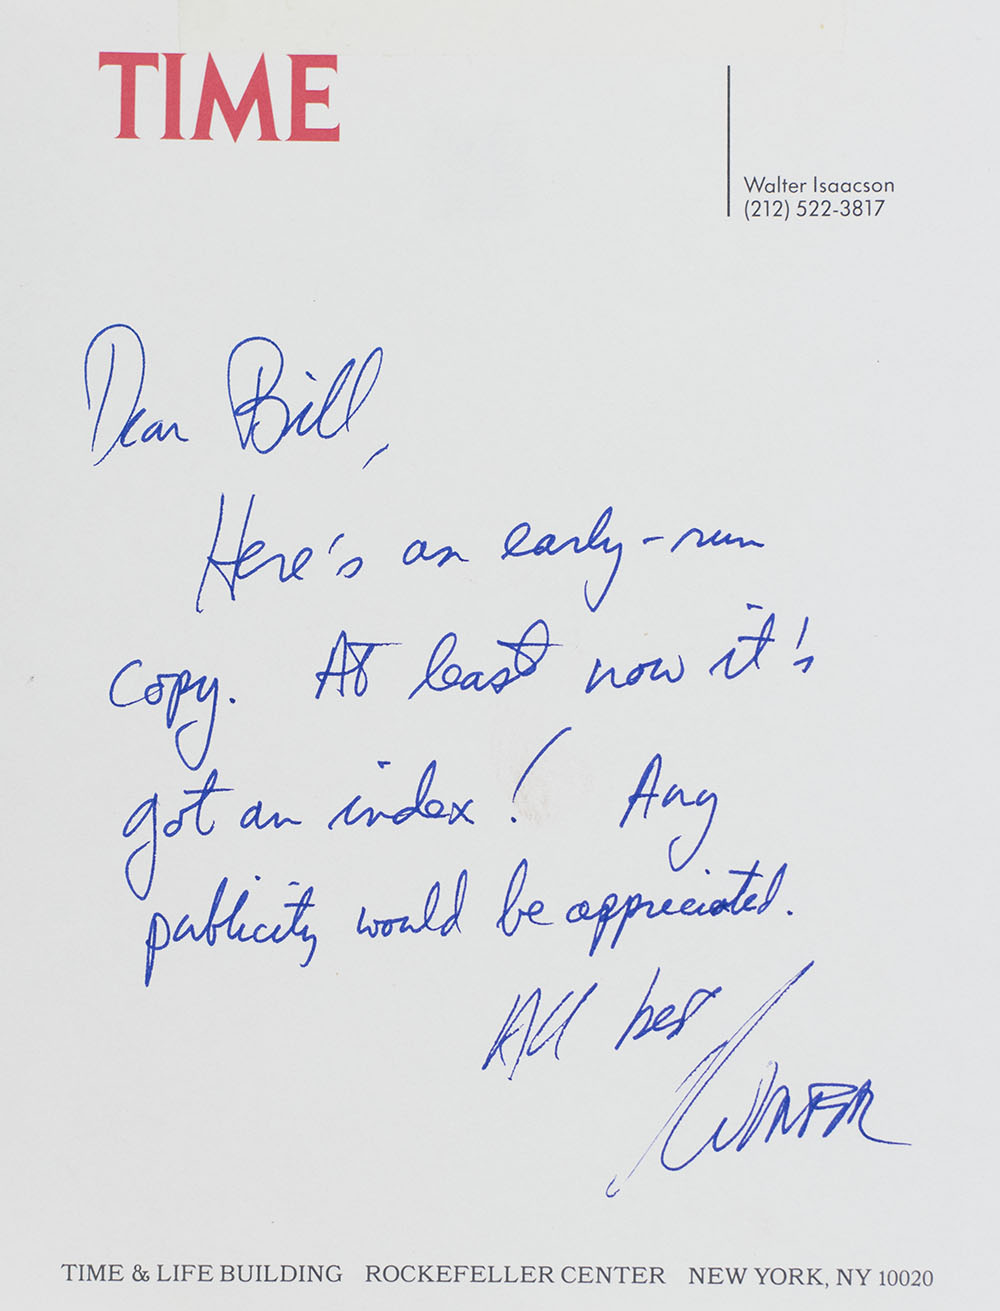 TIME
Walter Isaacson
(212) 522-3817
Dear Bill,
Here's an early-run
copy. At least now it's
got an index! Any
publicity would be appreciated.
All best
Walter
TIME & LIFE BUILDING ROCKEFELLER CENTER NEW YORK, NY 10020